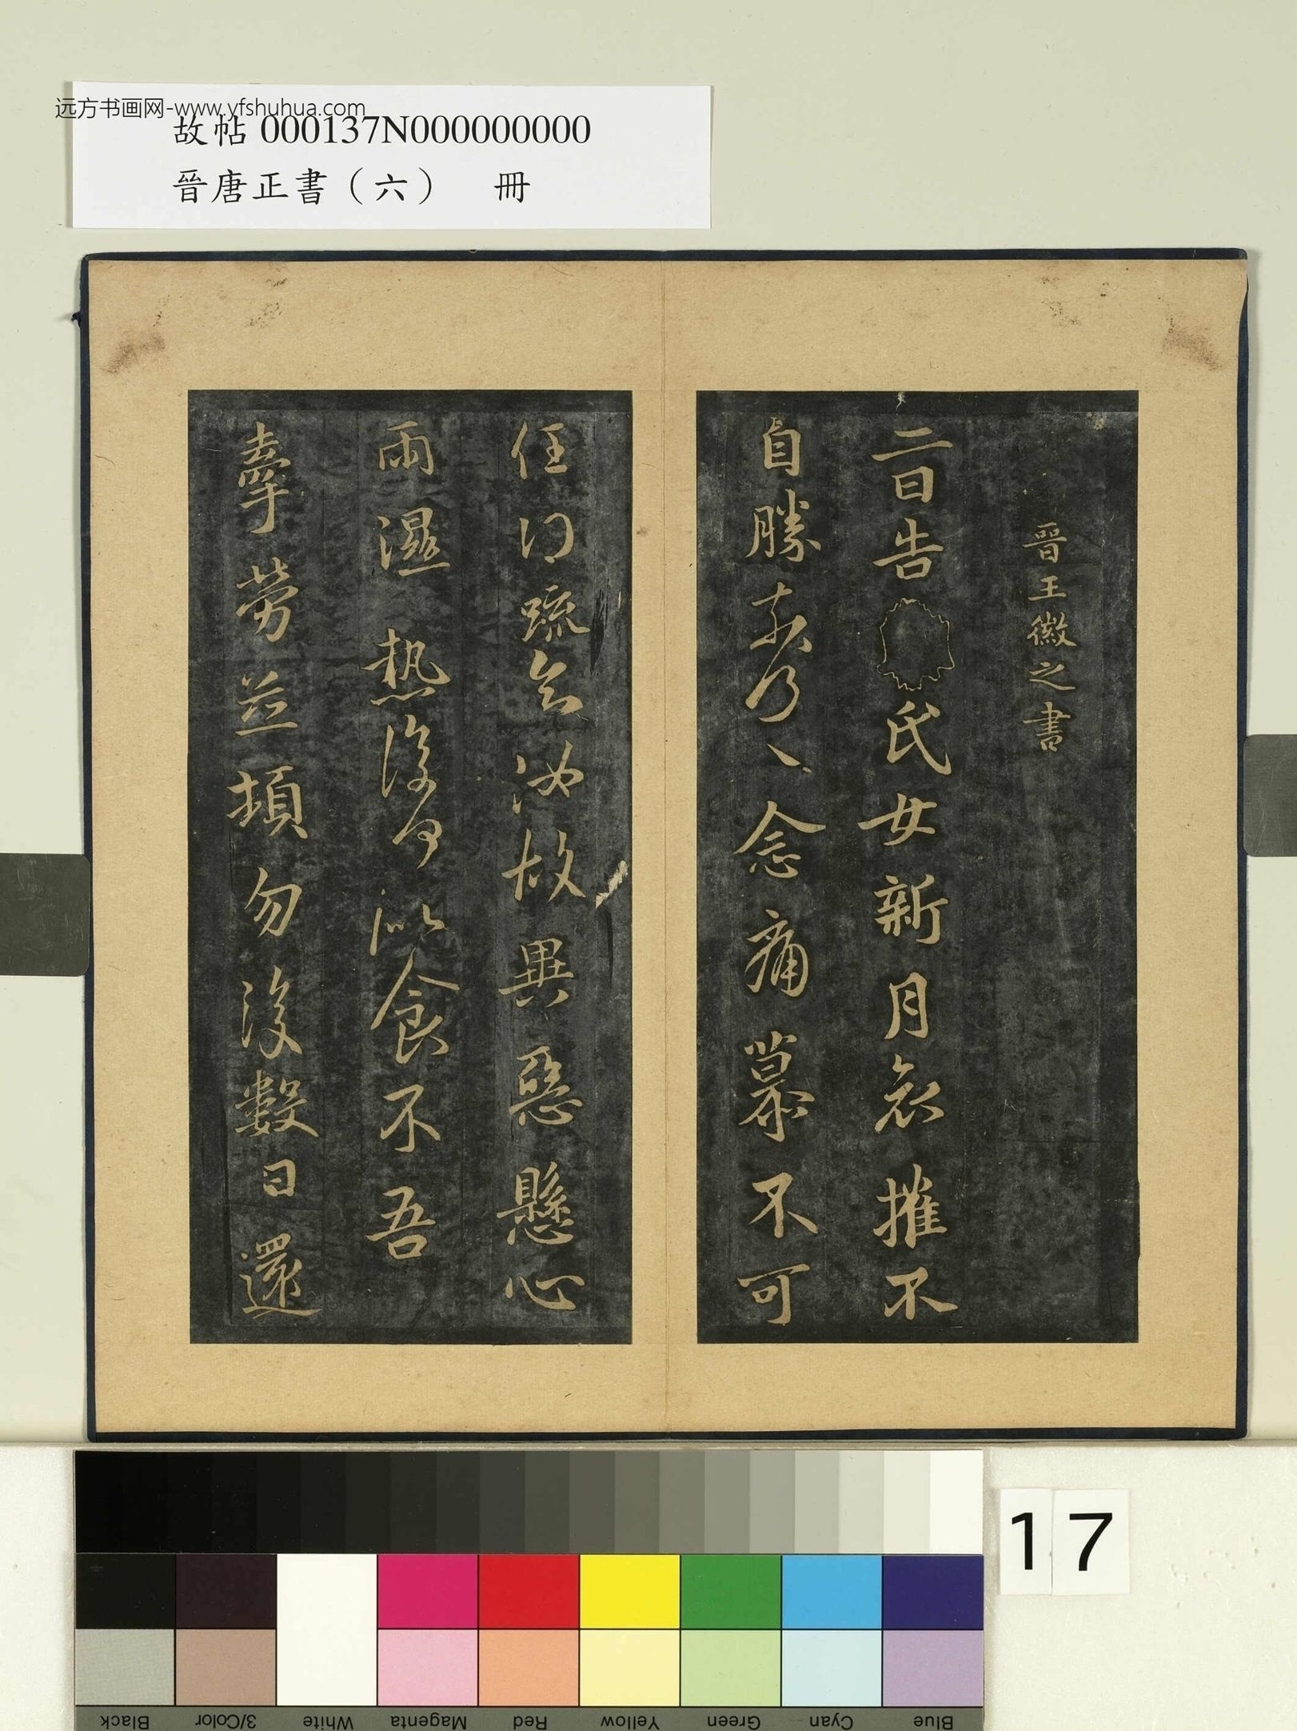 远方书画网-www.yfshuhua.com
故帖 000137N000000000
晉唐正書（六） 冊
晉王徽之書
二日告氏女新月哀摧不
自勝奈何〻念痛慕不可
任得疏知汝故異惡懸心
雨濕热復何以食不吾
牽勞並頓勿復數日還
17
Black 3/Color White Magenta Red Yellow Green Cyan Blue